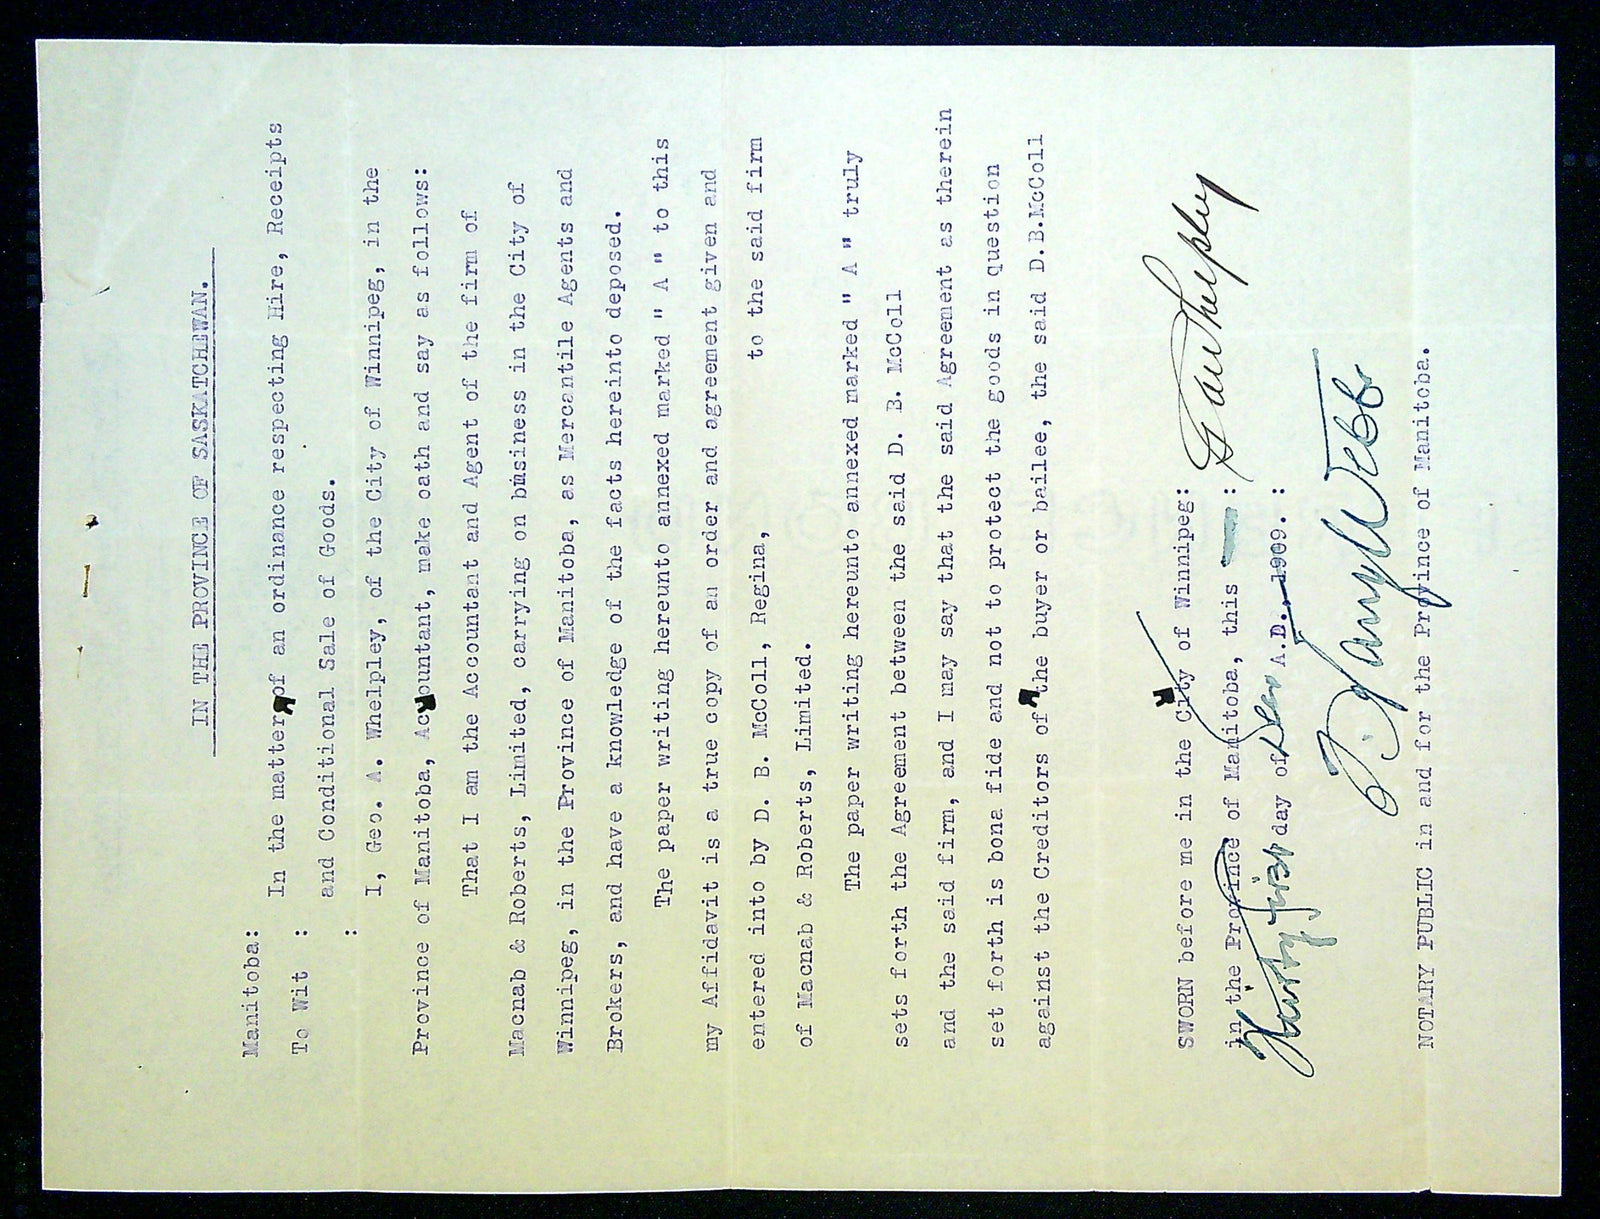 IN THE PROVINCE OF SASKATCHEWAN.
Manitoba: In the matter of an ordinance respecting Hire, Receipts
To Wit : and Conditional Sale of Goods.
:
I, Geo. A. Whelpley, of the City of Winnipeg, in the
Province of Manitoba, Accountant, make oath and say as follows:
That I am the Accountant and Agent of the firm of
Macnab & Roberts, Limited, carrying on business in the City of
Winnipeg, in the Province of Manitoba, as Mercantile Agents and
Brokers, and have a knowledge of the facts hereinto deposed.
The paper writing hereunto annexed marked " A " to this
my Affidavit is a true copy of an order and agreement given and
entered into by D. B. McColl, Regina, to the said firm
of Macnab & Roberts, Limited.
The paper writing hereunto annexed marked " A " truly
sets forth the Agreement between the said D. B. McColl
and the said firm, and I may say that the said Agreement as therein
set forth is bona fide and not to protect the goods in question
against the Creditors of the buyer or bailee, the said D.B.McColl
SWORN before me in the City of Winnipeg:
in the Province of Manitoba, this :
Thirty first day of Dec A.D., 1909. :
Geo A Whelpley
T. Harry Webb
NOTARY PUBLIC in and for the Province of Manitoba.